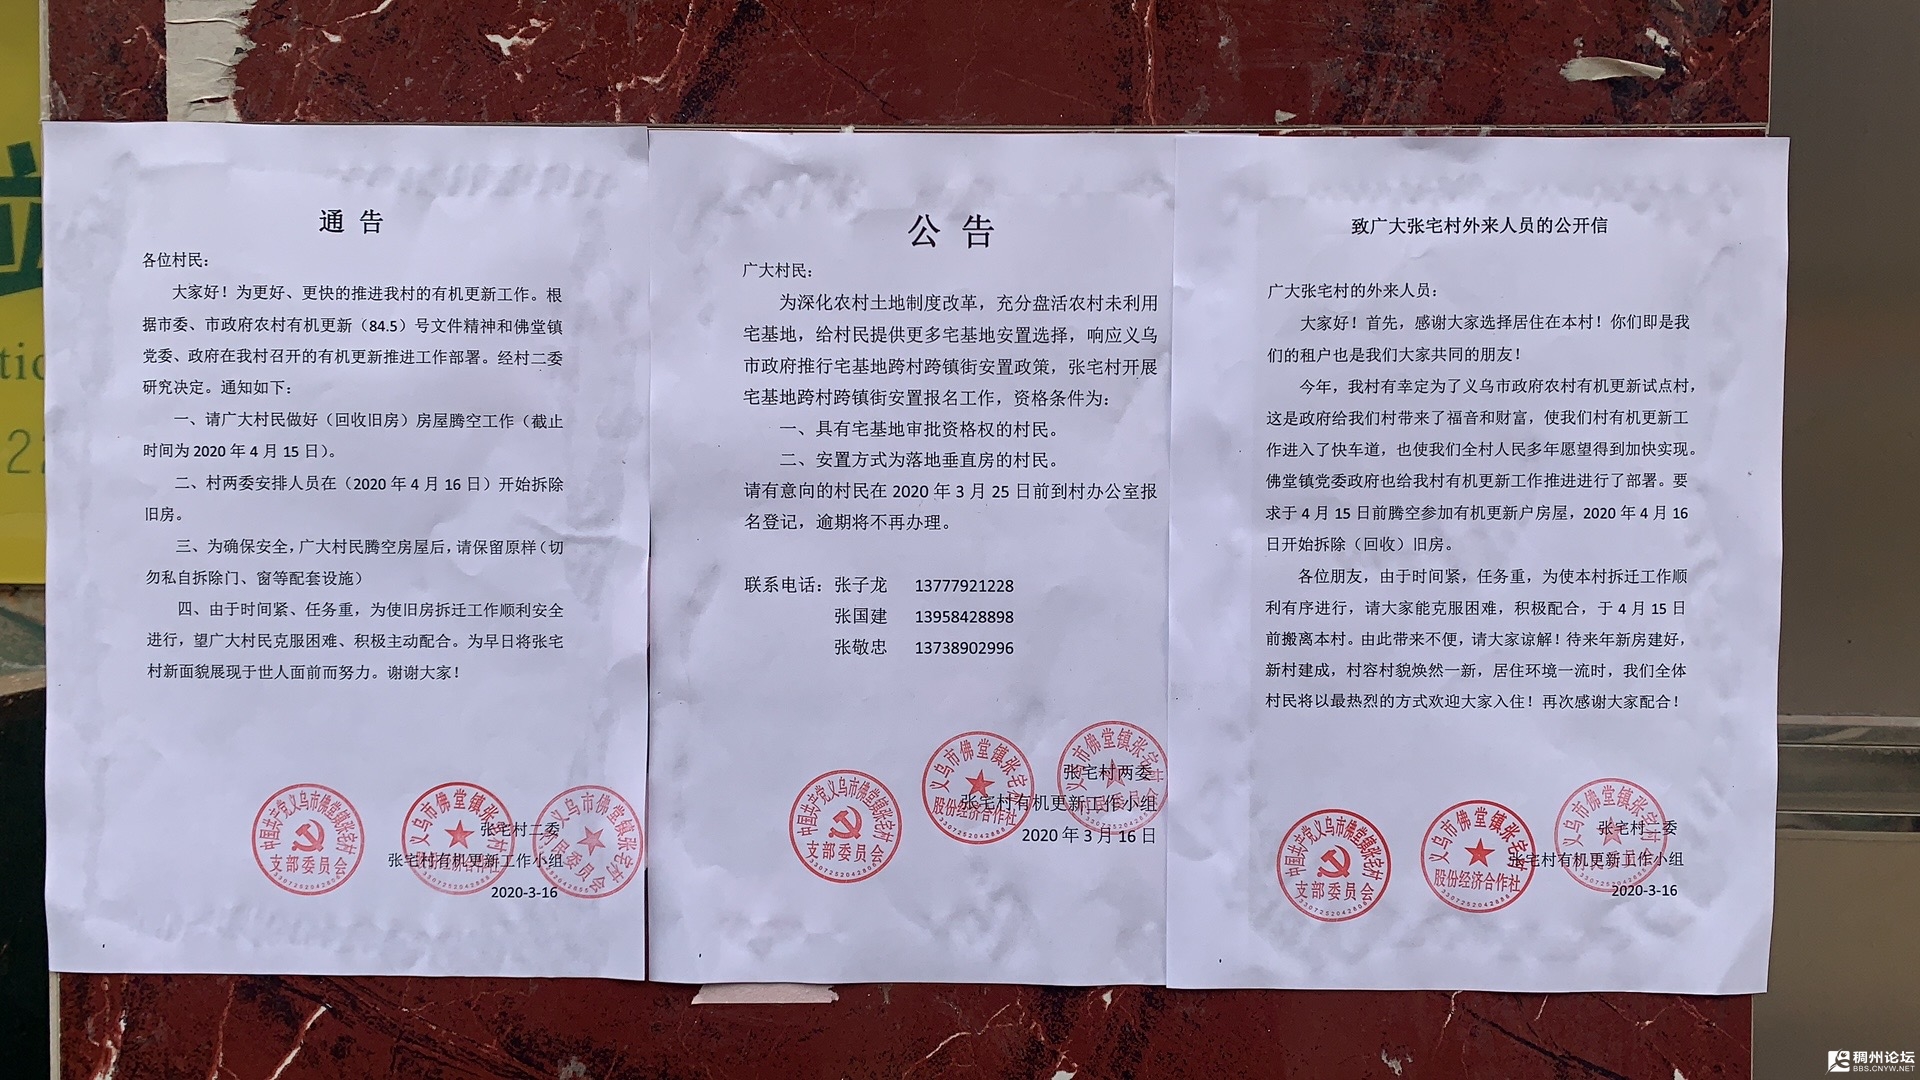 通 告
各位村民：
大家好！为更好、更快的推进我村的有机更新工作。根
据市委、市政府农村有机更新（84.5）号文件精神和佛堂镇
党委、政府在我村召开的有机更新推进工作部署。经村二委
研究决定。通知如下：
一、请广大村民做好（回收旧房）房屋腾空工作（截止
时间为 2020 年 4 月 15 日）。
二、村两委安排人员在（2020 年 4 月 16 日）开始拆除
旧房。
三、为确保安全，广大村民腾空房屋后，请保留原样（切
勿私自拆除门、窗等配套设施）
四、由于时间紧、任务重，为使旧房拆迁工作顺利安全
进行，望广大村民克服困难、积极主动配合。为早日将张宅
村新面貌展现于世人面前而努力。谢谢大家！
张宅村二委
张宅村有机更新工作小组
2020-3-16
中国共产党义乌市佛堂镇张宅村
支部委员会
义乌市佛堂镇张宅
义乌市佛堂镇张宅村
村民委员会
公 告
广大村民：
为深化农村土地制度改革，充分盘活农村未利用
宅基地，给村民提供更多宅基地安置选择，响应义乌
市政府推行宅基地跨村跨镇街安置政策，张宅村开展
宅基地跨村跨镇街安置报名工作，资格条件为：
一、具有宅基地审批资格权的村民。
二、安置方式为落地垂直房的村民。
请有意向的村民在 2020 年 3 月 25 日前到村办公室报
名登记，逾期将不再办理。
联系电话：张子龙 13777921228
张国建 13958428898
张敬忠 13738902996
张宅村两委
张宅村有机更新工作小组
2020 年 3 月 16 日
中国共产党义乌市佛堂镇张宅村
支部委员会
义乌市佛堂镇张宅村
股份经济合作社
义乌市佛堂镇张宅村
致广大张宅村外来人员的公开信
广大张宅村的外来人员：
大家好！首先，感谢大家选择居住在本村！你们即是我
们的租户也是我们大家共同的朋友！
今年，我村有幸定为了义乌市政府农村有机更新试点村，
这是政府给我们村带来了福音和财富，使我们村有机更新工
作进入了快车道，也使我们全村人民多年愿望得到加快实现。
佛堂镇党委政府也给我村有机更新工作推进进行了部署。要
求于 4 月 15 日前腾空参加有机更新户房屋，2020 年 4 月 16
日开始拆除（回收）旧房。
各位朋友，由于时间紧，任务重，为使本村拆迁工作顺
利有序进行，请大家能克服困难，积极配合，于 4 月 15 日
前搬离本村。由此带来不便，请大家谅解！待来年新房建好，
新村建成，村容村貌焕然一新，居住环境一流时，我们全体
村民将以最热烈的方式欢迎大家入住！再次感谢大家配合！
张宅村二委
张宅村有机更新工作小组
2020-3-16
中国共产党义乌市佛堂镇张宅村
支部委员会
义乌市佛堂镇张宅村
股份经济合作社
义乌市佛堂镇张宅村
稠州论坛
BBS.CNYW.NET